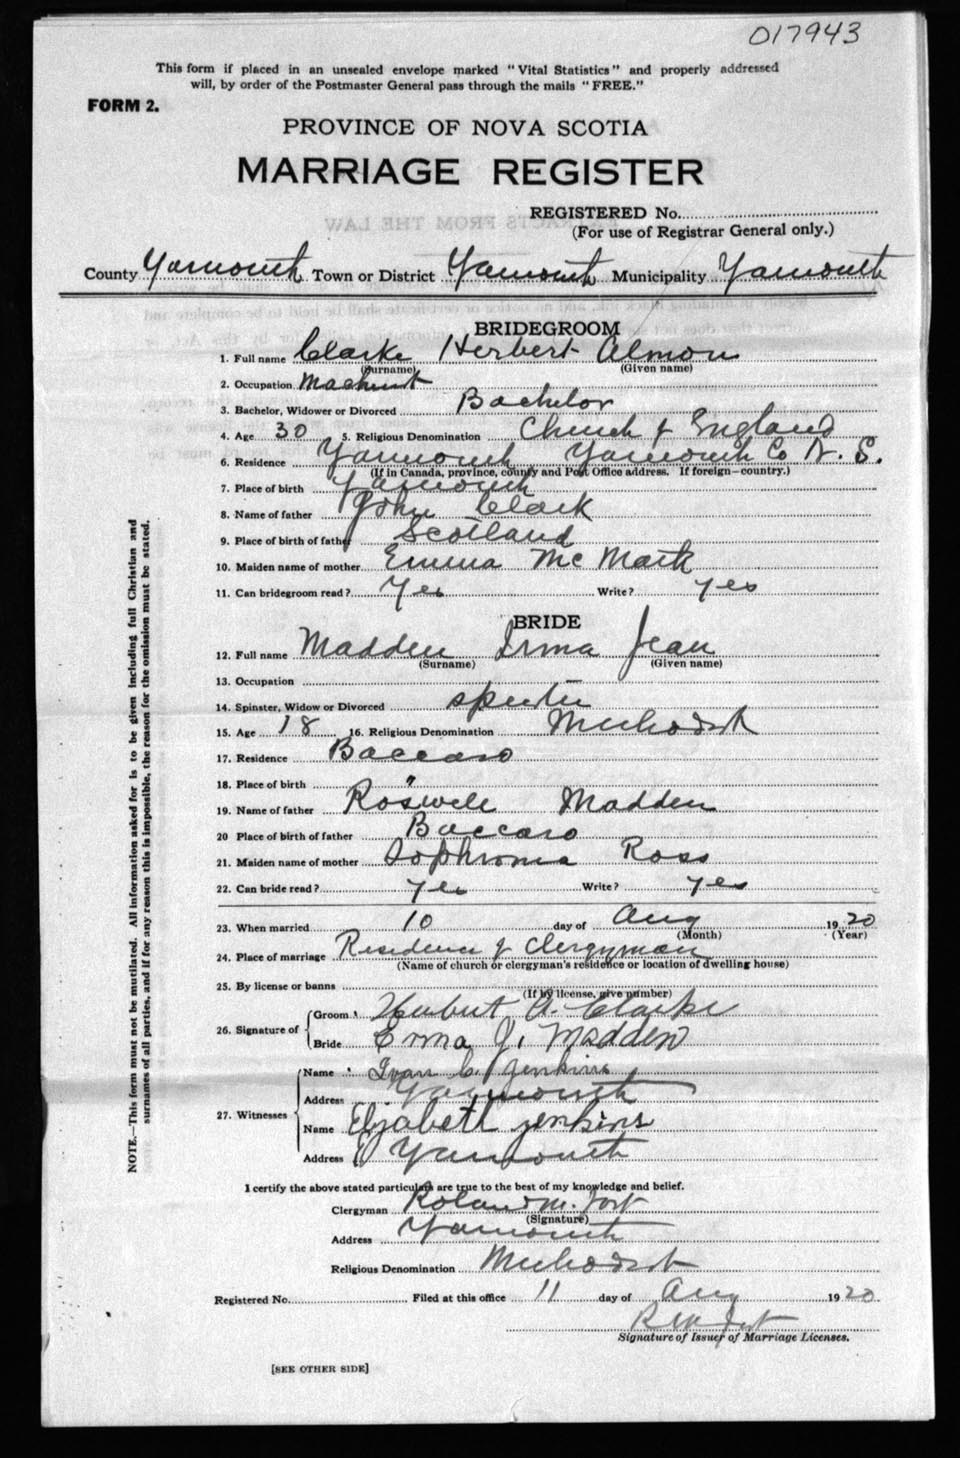 017943
This form if placed in an unsealed envelope marked "Vital Statistics" and properly addressed
will, by order of the Postmaster General pass through the mails "FREE."
FORM 2.
PROVINCE OF NOVA SCOTIA
MARRIAGE REGISTER
REGISTERED No.
(For use of Registrar General only.)
County Yarmouth Town or District Yarmouth Municipality Yarmouth
BRIDEGROOM
1. Full name Clarke Herbert Almon
(Surname) (Given name)
2. Occupation Machinist
3. Bachelor, Widower or Divorced Bachelor
4. Age 30 5. Religious Denomination Church of England
6. Residence Yarmouth Yarmouth Co N. S.
(If in Canada, province, county and Post Office address. If foreign—country.)
7. Place of birth Yarmouth
8. Name of father John Clark
9. Place of birth of father Scotland
10. Maiden name of mother Emma Mc Mark
11. Can bridegroom read? Yes Write? yes
BRIDE
12. Full name Madden Irma Jean
(Surname) (Given name)
13. Occupation
14. Spinster, Widow or Divorced
15. Age 18 16. Religious Denomination Methodist
17. Residence Baccaro
18. Place of birth "
19. Name of father Roswell Madden
20 Place of birth of father Baccaro
21. Maiden name of mother Sophronia Ross
22. Can bride read? yes Write? yes
23. When married 10 day of Aug 1920
(Month) (Year)
24. Place of marriage Residence of Clergyman
(Name of church or clergyman's residence or location of dwelling house)
25. By license or banns
(If by license, give number)
26. Signature of Groom Herbert A. Clarke
Bride Erma J. Madden
27. Witnesses Name Ivan C. Jenkins
Address Yarmouth
Name Elizabeth Jenkins
Address Yarmouth
I certify the above stated particulars are true to the best of my knowledge and belief.
Clergyman Roland M.
(Signature)
Address Yarmouth
Religious Denomination Methodist
Registered No. Filed at this office 11 day of Aug 1920
Signature of Issuer of Marriage Licenses.
[SEE OTHER SIDE]
NOTE.—This form must not be mutilated. All information asked for is to be given including full Christian and
surnames of all parties, and if for any reason this is impossible, the reason for the omission must be stated.